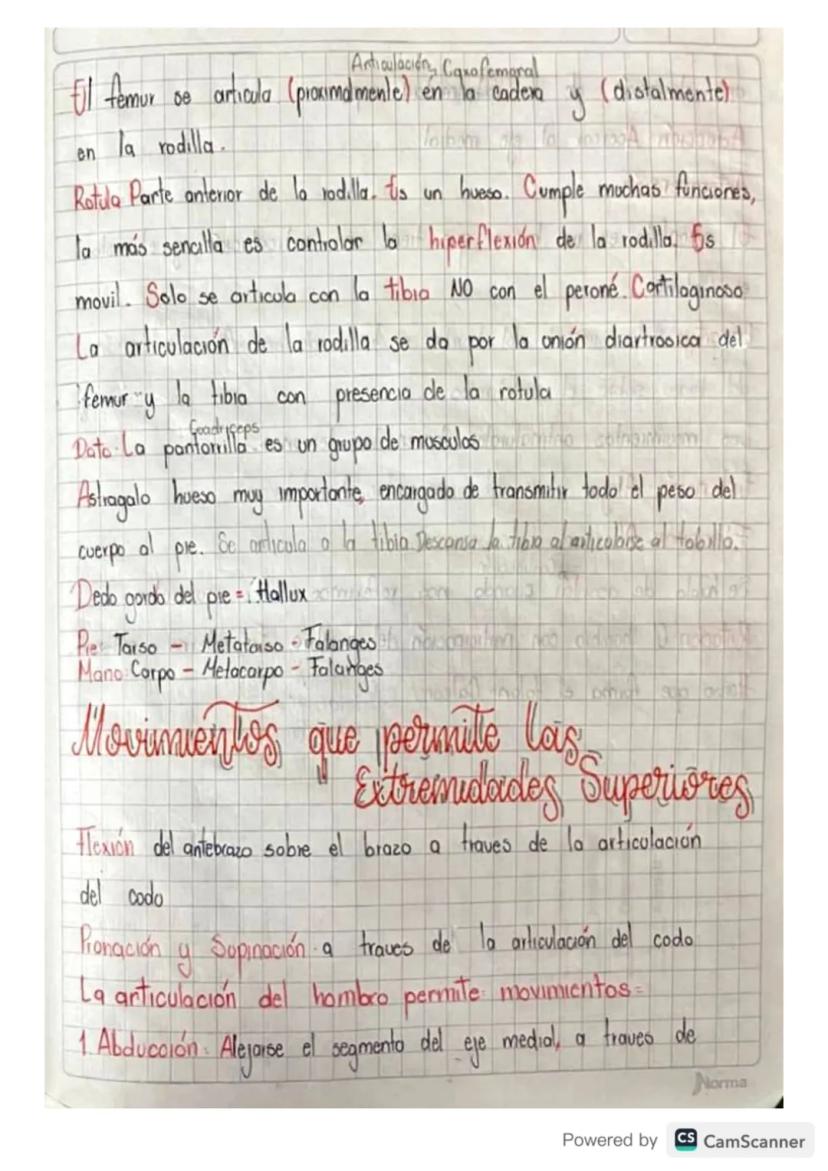 Articulación Coxofemoral
El femur se articula (proximalmente) en la cadera y (distalmente)
en la rodilla.
Rotula Parte anterior de la rodilla. Es un hueso. Cumple muchas funciones,
la más sencilla es controlar la hiperflexión de la rodilla. Es
movil. Solo se articula con la tibia NO con el peroné. Cartilaginoso
La articulación de la rodilla se da por la unión diartrosica del
femur y la tibia con presencia de la rotula
Cuadriceps
Dato: La pantorrilla es un grupo de musculos
Astragalo hueso muy importante, encargado de transmitir todo el peso del
cuerpo al pie. Se articula a la tibia Descansa la tibia al articularse al tobillo.
Dedo gordo del pie = Hallux
Pie: Tarso - Metatarso - Falanges
Mano: Carpo - Metacarpo - Falanges
Movimientos que permite las
Extremidades Superiores
Flexión del antebrazo sobre el brazo a traves de la articulación
del codo
Pronación y Supinación a traves de la articulación del codo
La articulación del hombro permite movimientos=
1. Abducción: Alejarse el segmento del eje medial, a traves de
Norma
Powered by CS CamScanner